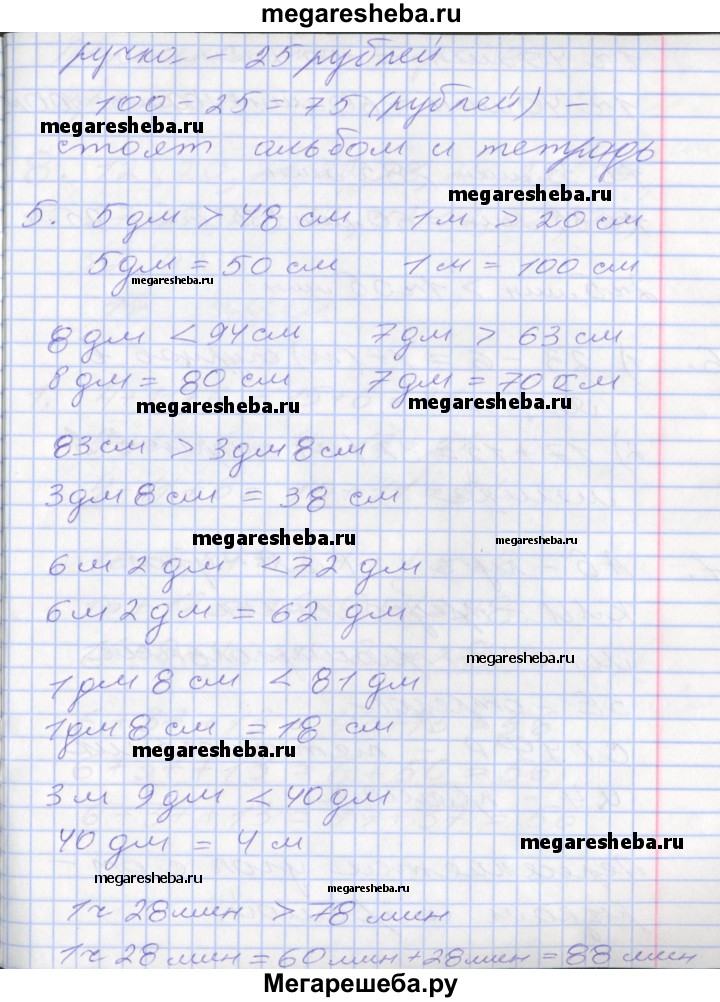 megaresheba.ru
ручка - 25 рублей
100 - 25 = 75 (рублей) -
megaresheba.ru
стоят альбом и тетрадь
megaresheba.ru
5. 5 дм > 48 см 1 м > 20 см
5 дм = 50 см 1 м = 100 см
megaresheba.ru
8 дм < 94 см 7 дм > 63 см
8 дм = 80 см 7 дм = 70 см
megaresheba.ru megaresheba.ru
83 см > 3 дм 8 см
3 дм 8 см = 38 см
megaresheba.ru megaresheba.ru
6 м 2 дм < 72 дм
6 м 2 дм = 62 дм
megaresheba.ru
1 дм 8 см < 81 дм
1 дм 8 см = 18 см
megaresheba.ru
3 м 9 дм < 40 дм
40 дм = 4 м
megaresheba.ru
megaresheba.ru megaresheba.ru
1 ч 28 мин > 78 мин
1 ч 28 мин = 60 мин + 28 мин = 88 мин
Мегарешеба.ру